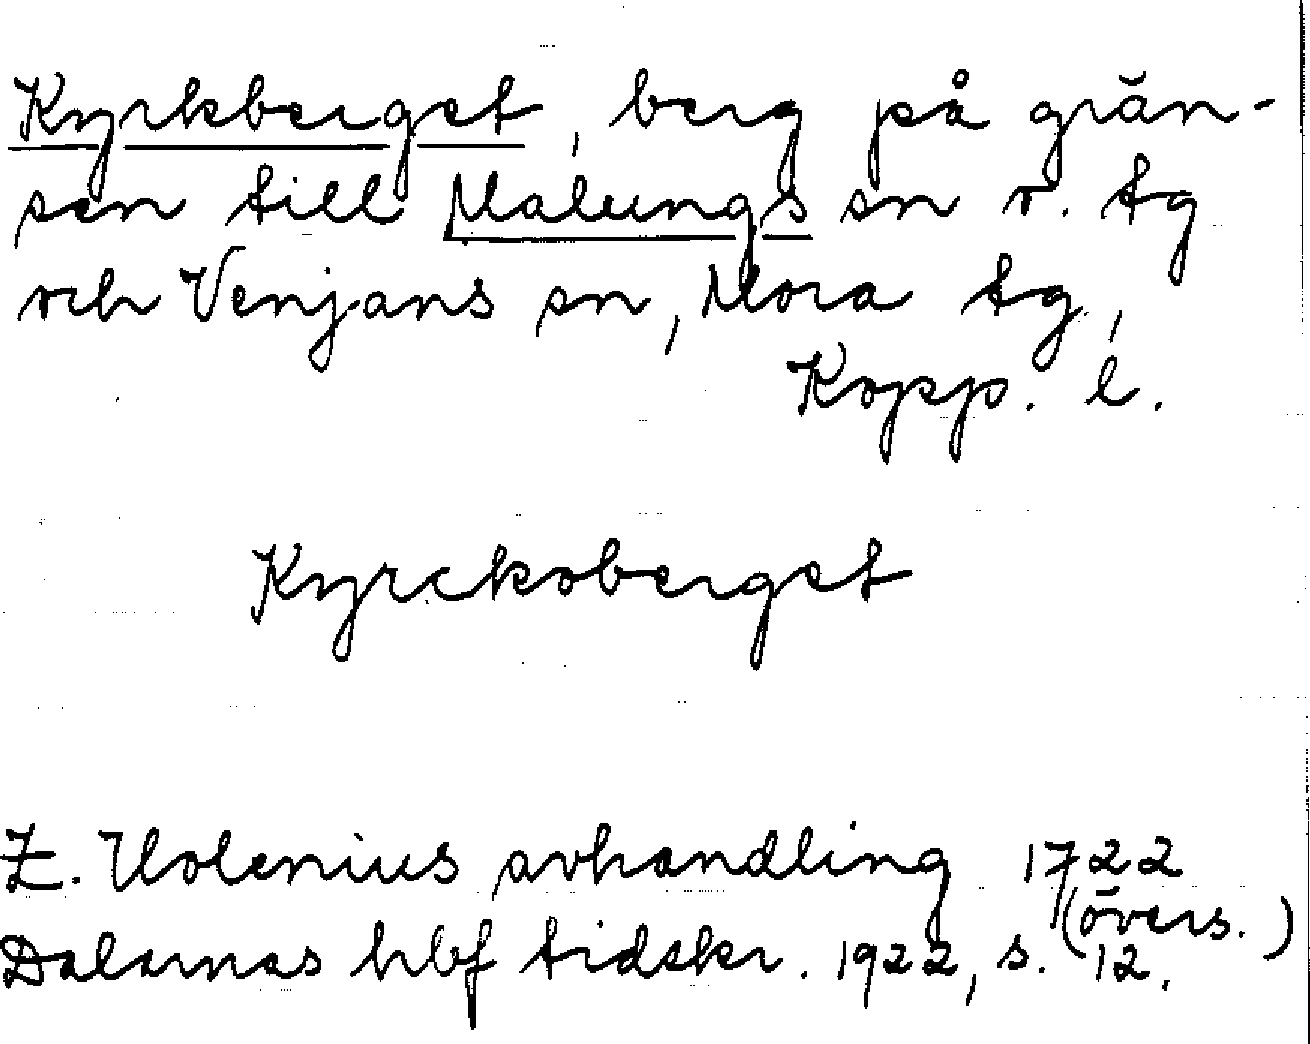 Kyrkberget, berg på grän-
sen till Malungs sn o. tg
och Venjans sn, Mora tg,
Kopp. l.
Kyrckoberget
Z. Holenius avhandling 1722
(övers.)
Dalarnas hbf tidskr. 1922, s. 12.